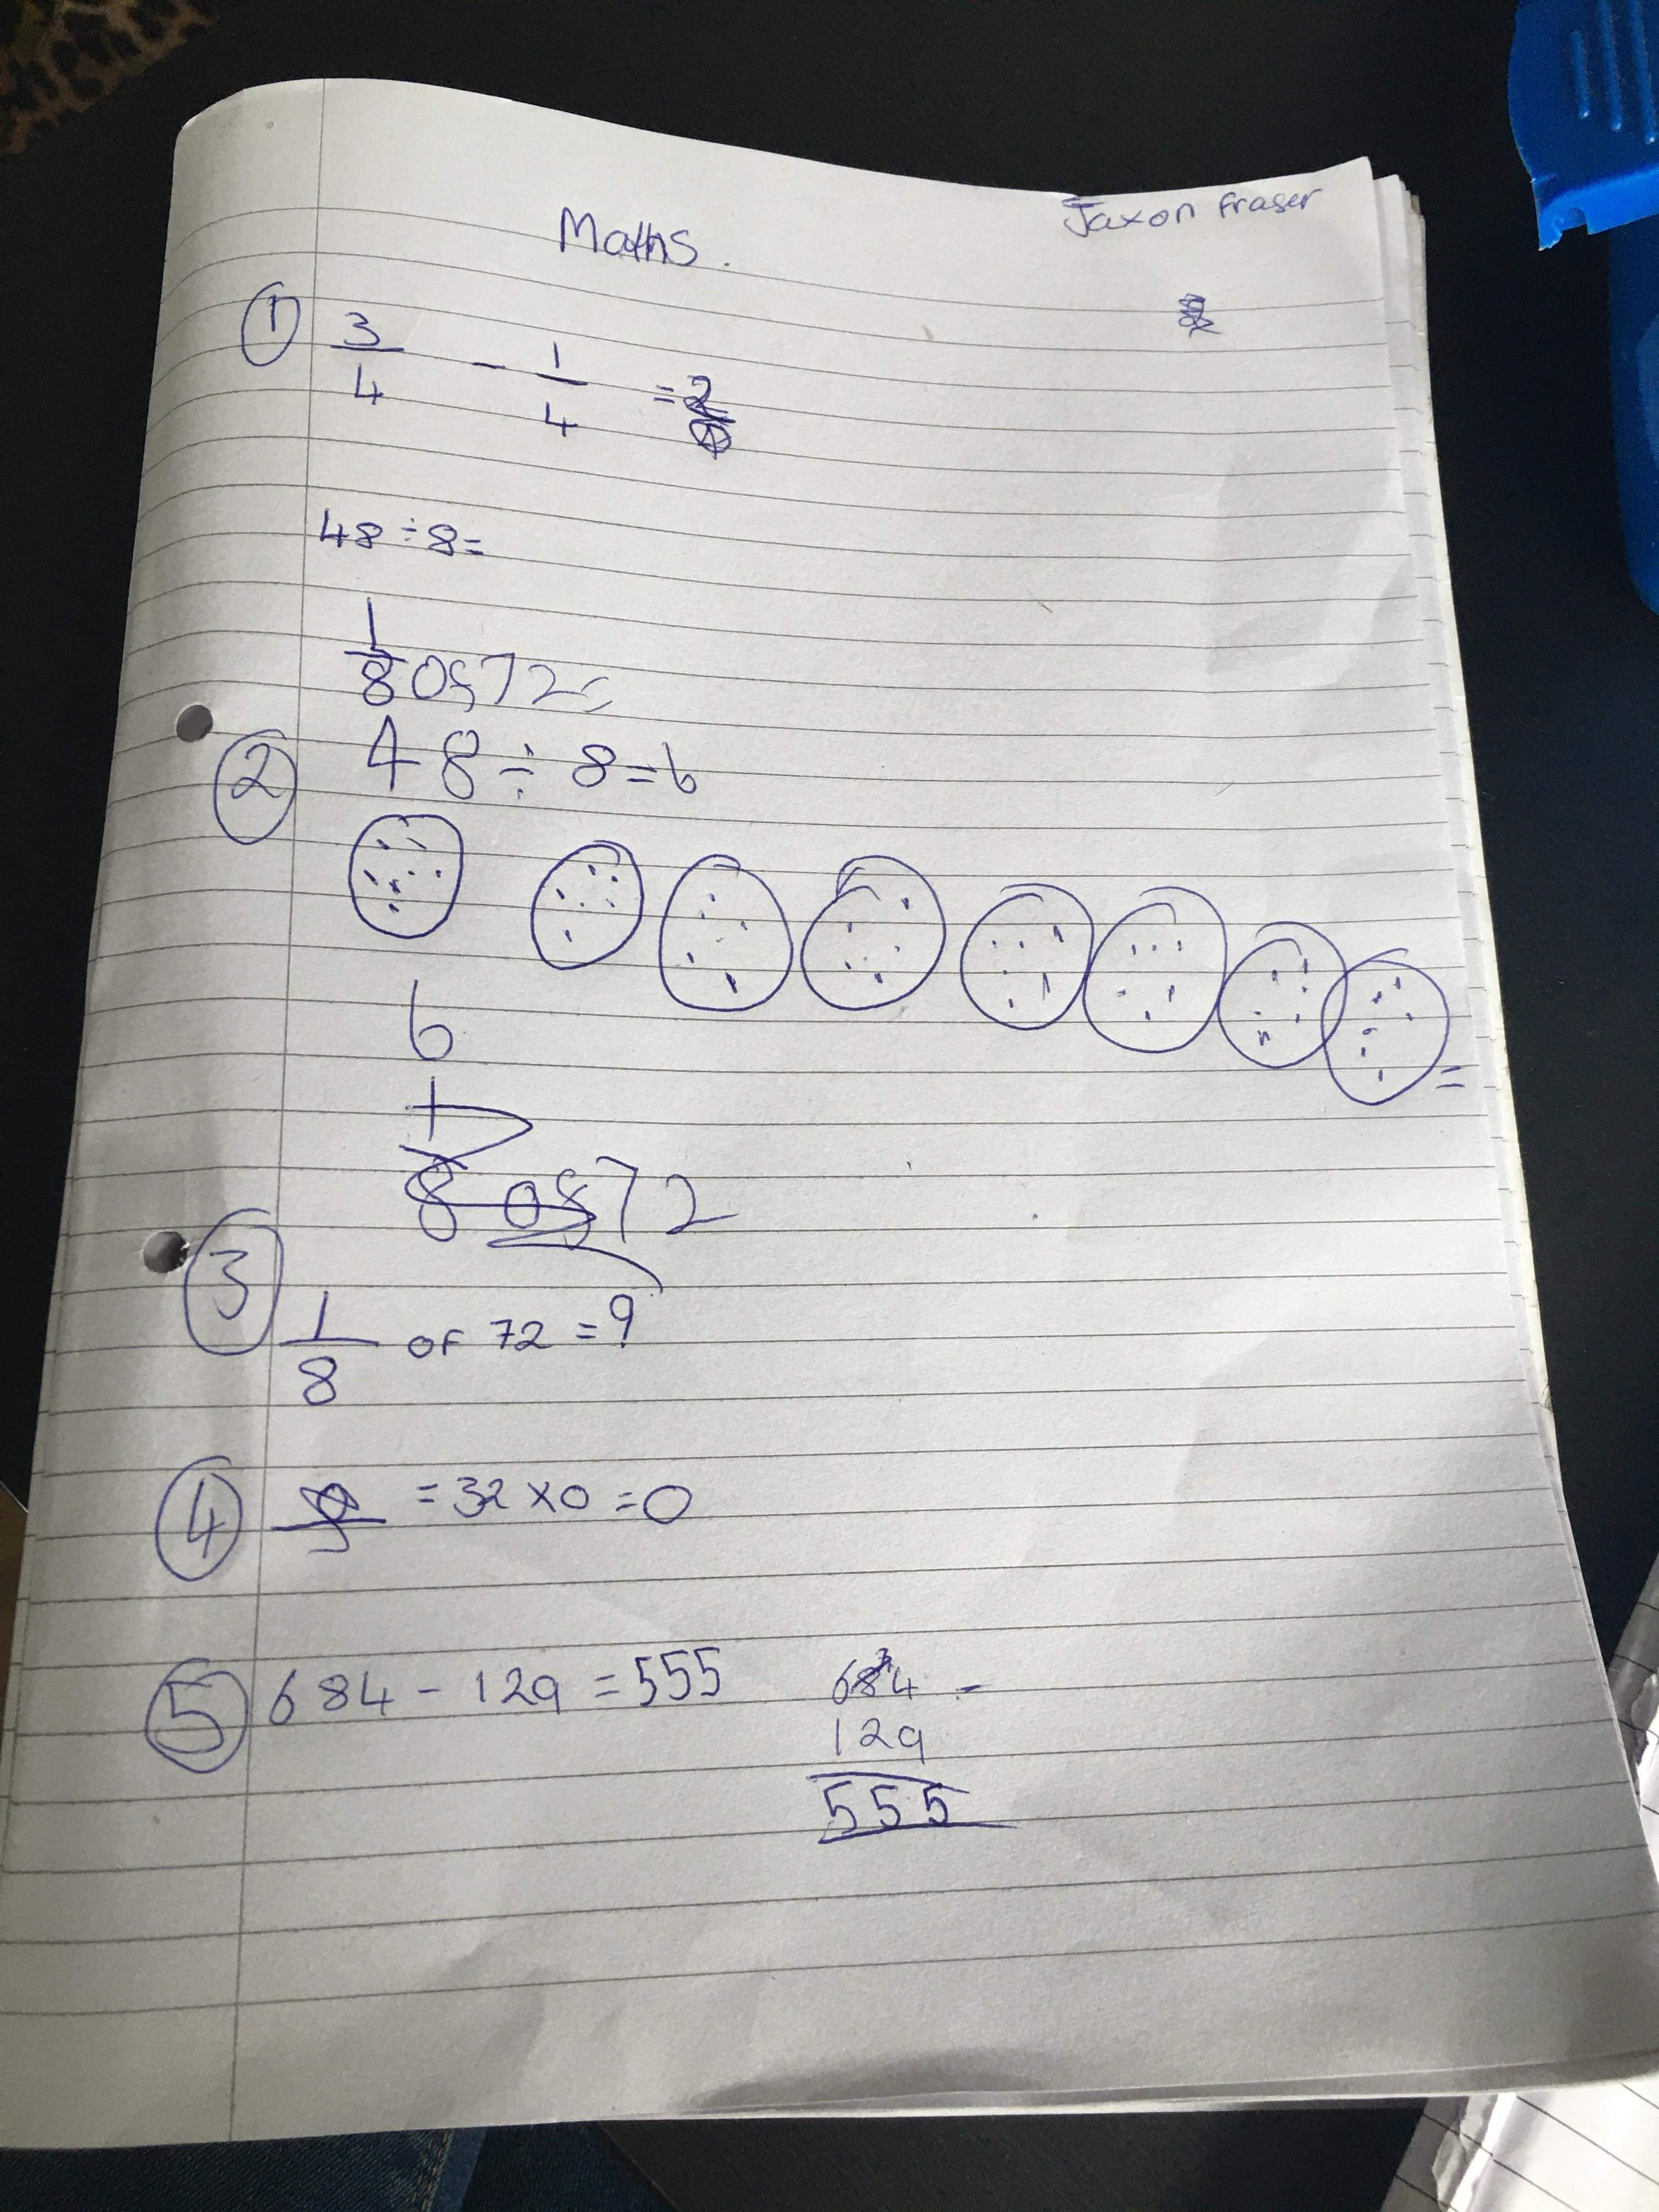 Jaxon Fraser
Maths.
① 3/4 - 1/4 = 2/4
48 ÷ 8 =
1/8 of 72 =
② 48 ÷ 8 = 6
=
6
1/8 of 72
③ 1/8 of 72 = 9
④ = 32 x 0 = 0
⑤ 684 - 129 = 555
684 -
129
555